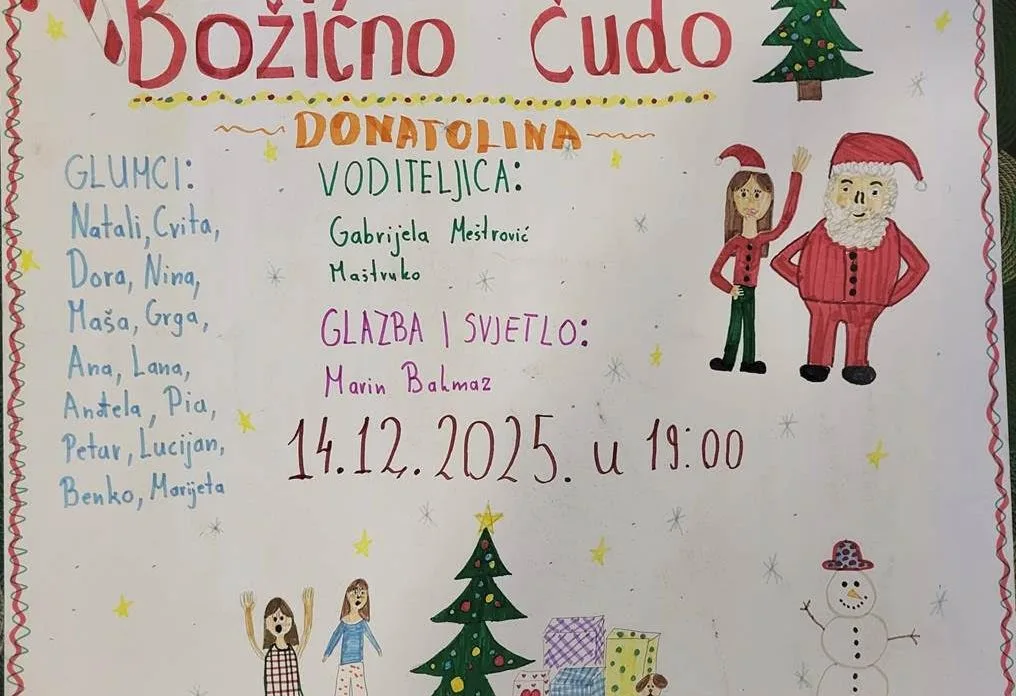 Božićno čudo
DONATOLINA
GLUMCI:
Natali, Cvita,
Dora, Nina,
Maša, Grga,
Ana, Lana,
Anđela, Pia,
Petar, Lucijan,
Benko, Marijeta
VODITELJICA:
Gabrijela Meštrović
Maštruko
GLAZBA I SVJETLO:
Marin Balmaz
14.12.2025. u 19:00